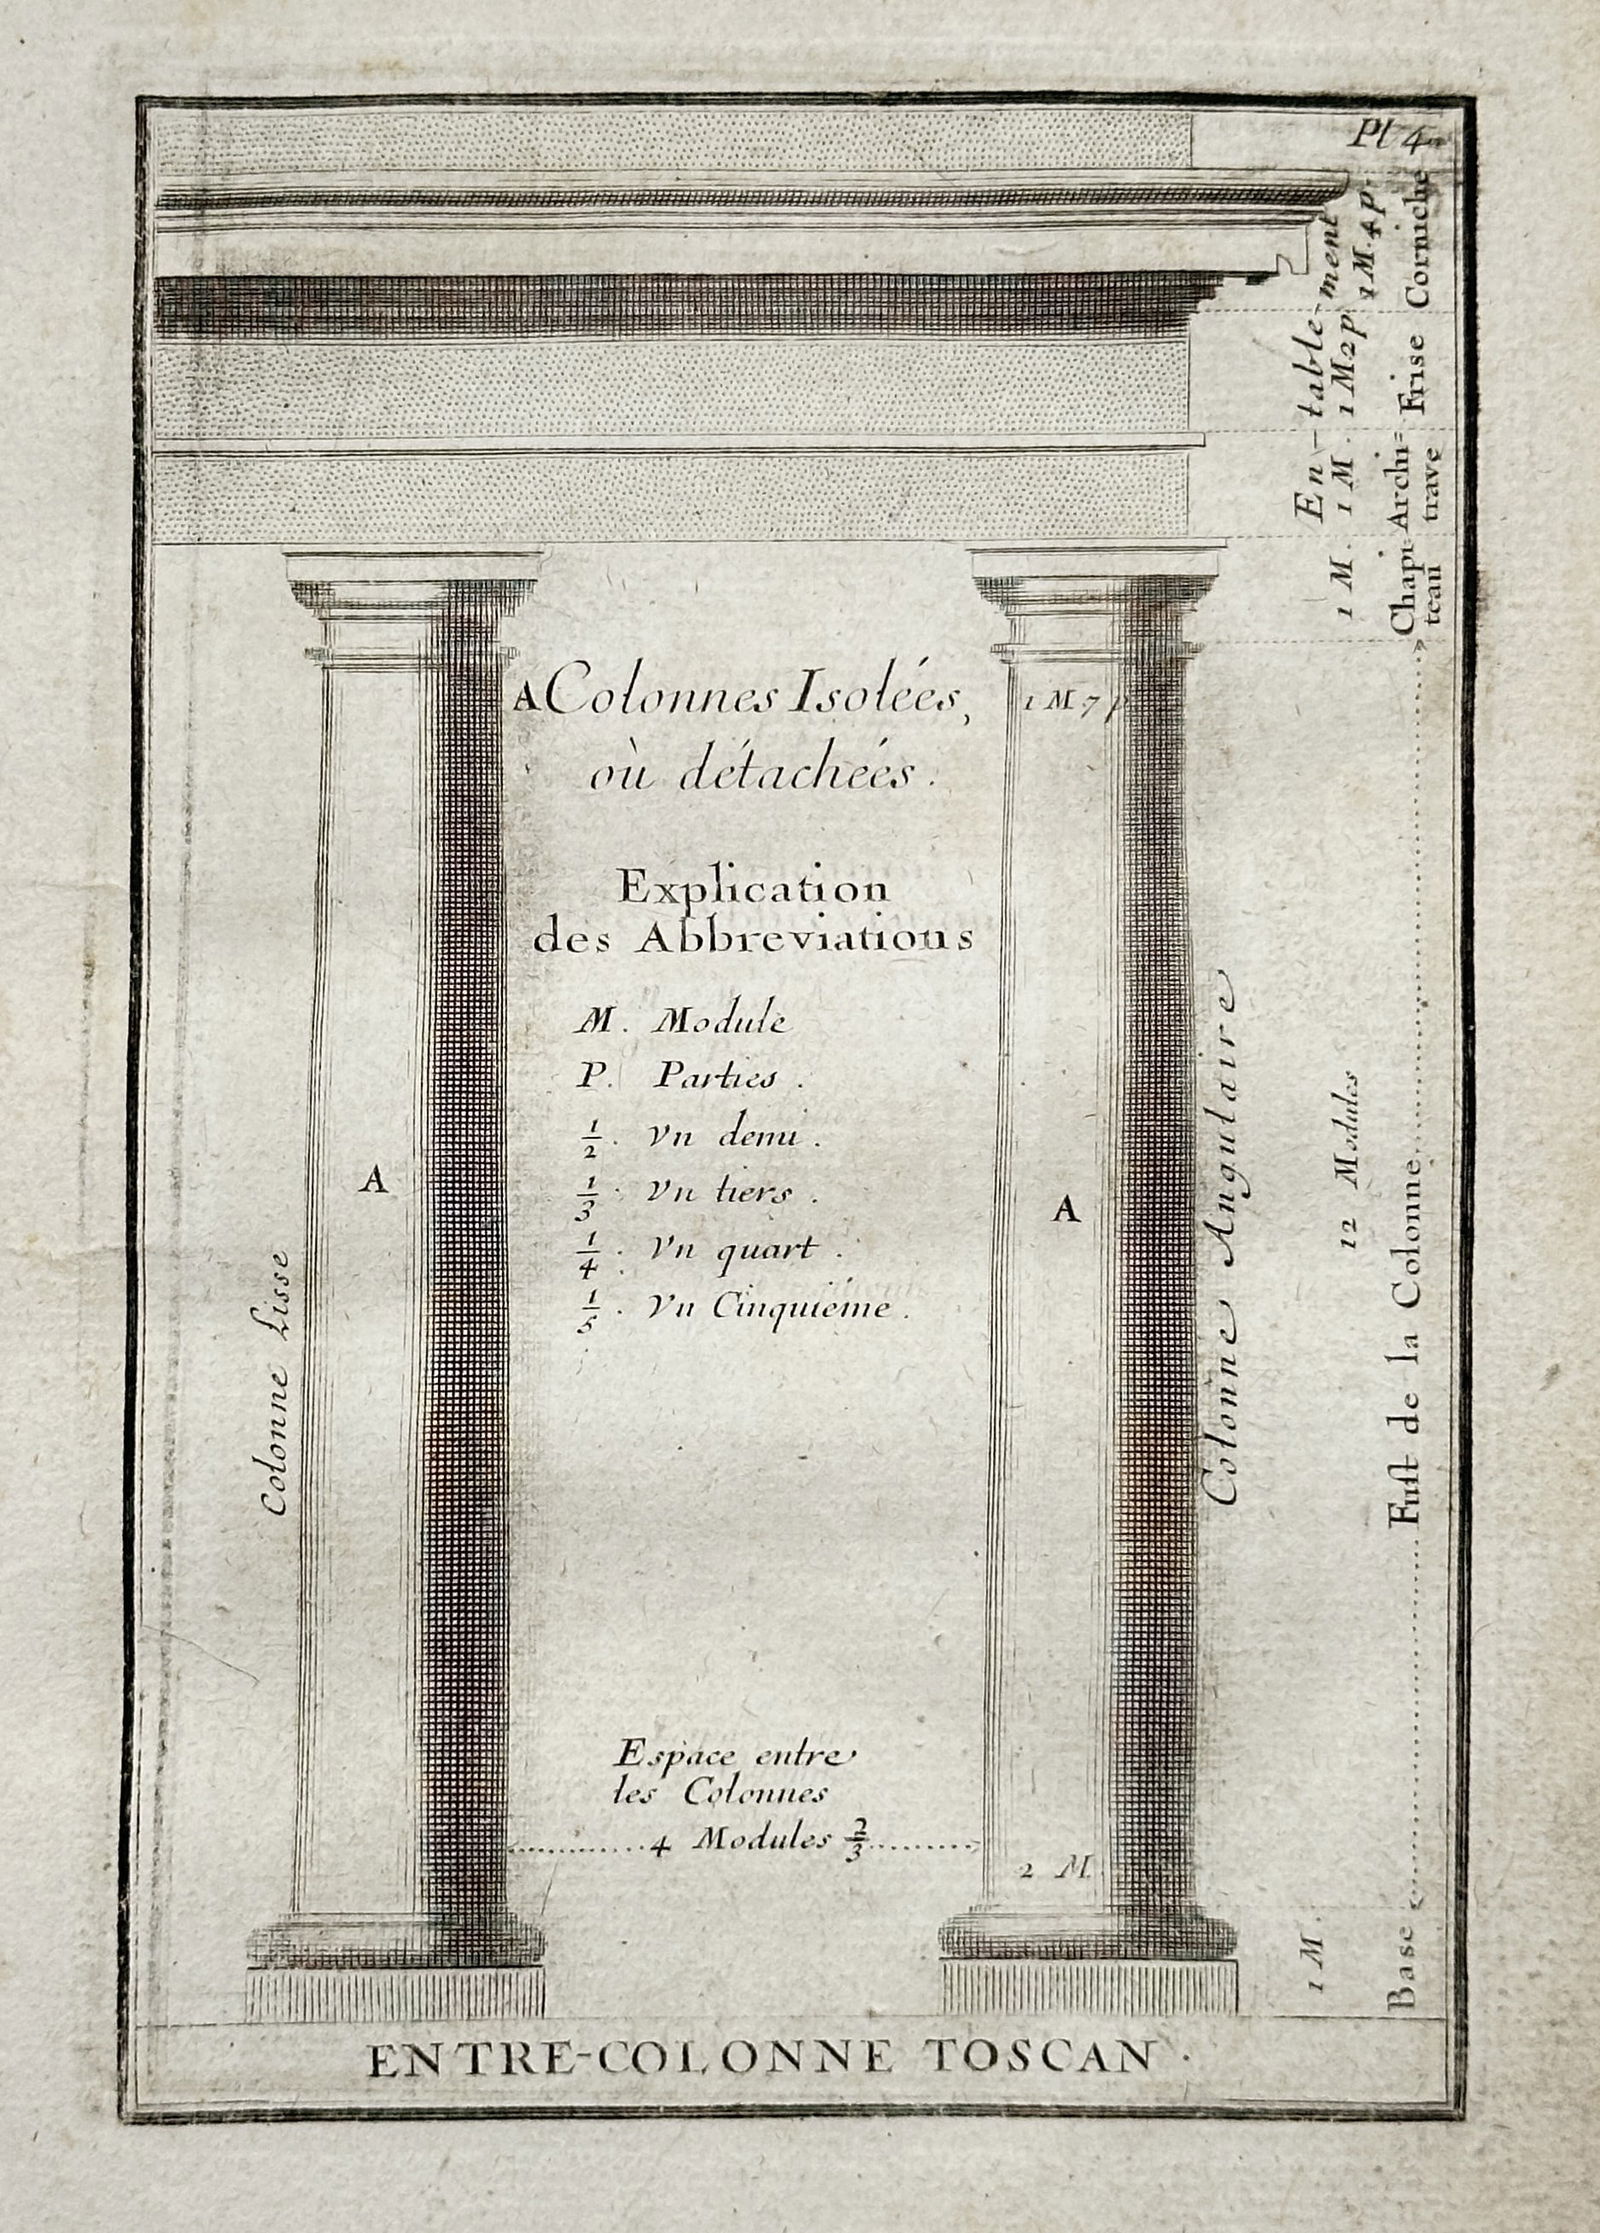 Pl 4
Corniche
1 M. 4 P.
En-table-ment
1 M 2 P
Frise
1 M.
Archi=
trave
1 M.
Chapi
teau
A Colonnes Isolées,
où détachées.
1 M 7 p
Explication
des Abbreviations
M. Module
P. Parties.
1/2. Vn demi.
1/3. Vn tiers.
1/4. Vn quart.
1/5. Vn Cinquiéme.
A
A
Colonne Lisse
Colonne Angulaire
12 Modules
Fust de la Colonne
Espace entre
les Colonnes
4 Modules 2/3
2 M.
1 M.
Base
ENTRE-COLONNE TOSCAN.